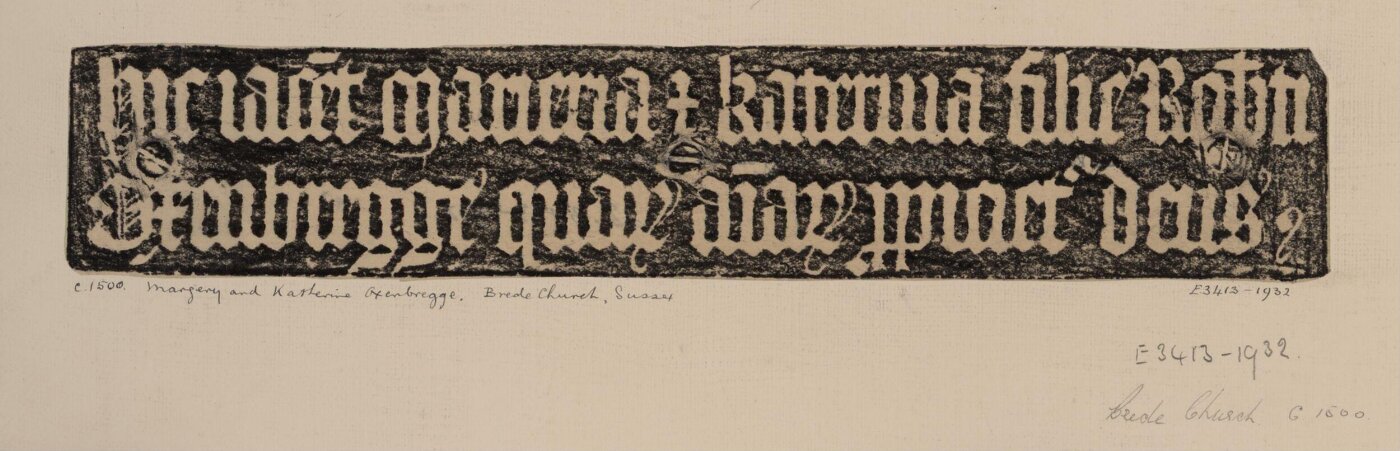 hic iacēt Margeria & katerina filie Rob̄ti
Oxenbregge quaꝝ aīaꝝ ꝓpiciet᷑ deus
c.1500. Margery and Katherine Oxenbregge, Brede Church, Sussex
E3413-1932
E3413-1932.
Brede Church C 1500.